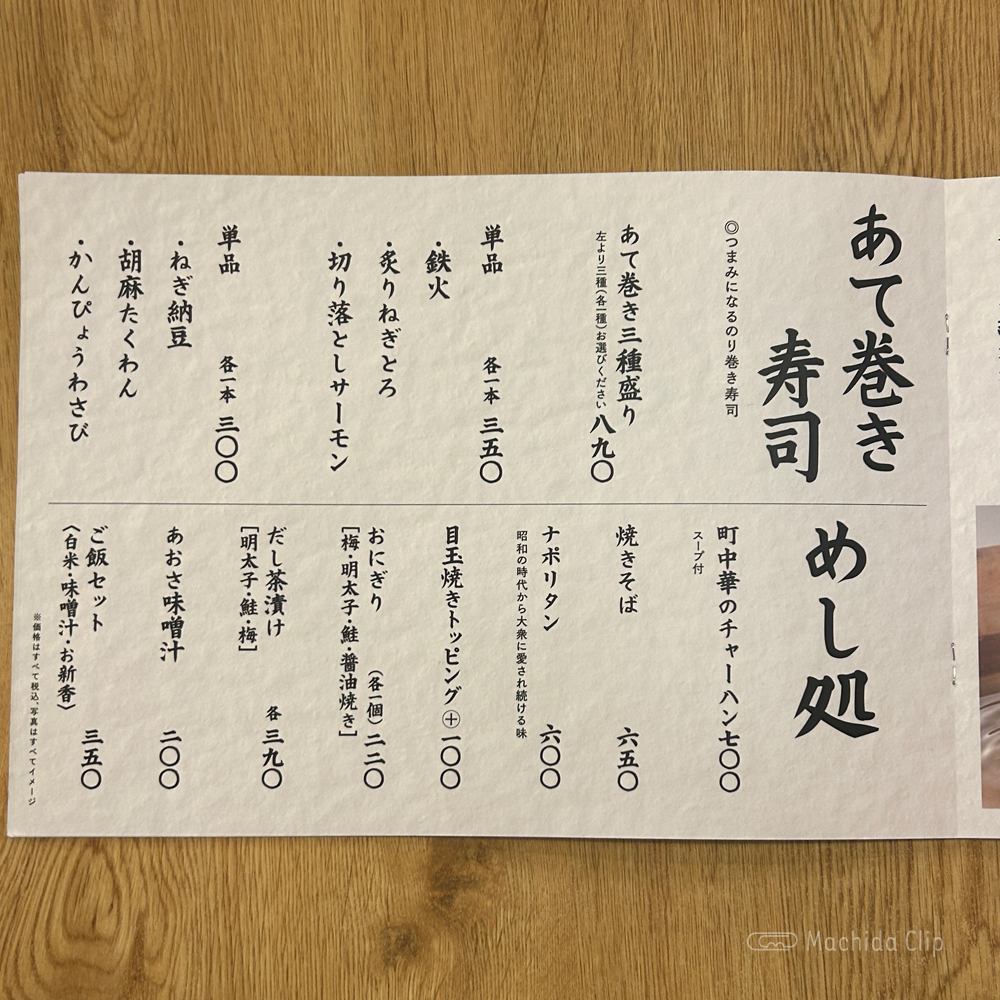 あて巻き
寿司
◎つまみになるのり巻き寿司
あて巻き三種盛り 八九〇
左より三種(各一種)お選びください
単品 各一本 三五〇
・鉄火
・炙りねぎとろ
・切り落としサーモン
単品 各一本 三〇〇
・ねぎ納豆
・胡麻たくわん
・かんぴょうわさび
めし処
町中華のチャーハン 七〇〇
スープ付
焼きそば 六五〇
ナポリタン 六〇〇
昭和の時代から大衆に愛され続ける味
目玉焼きトッピング ⊕一〇〇
おにぎり (各一個) 二二〇
[梅・明太子・鮭・醤油焼き]
だし茶漬け 各 三九〇
[明太子・鮭・梅]
あおさ味噌汁 二〇〇
ご飯セット 三五〇
〈白米・味噌汁・お新香〉
※価格はすべて税込、写真はすべてイメージ
Machida Clip